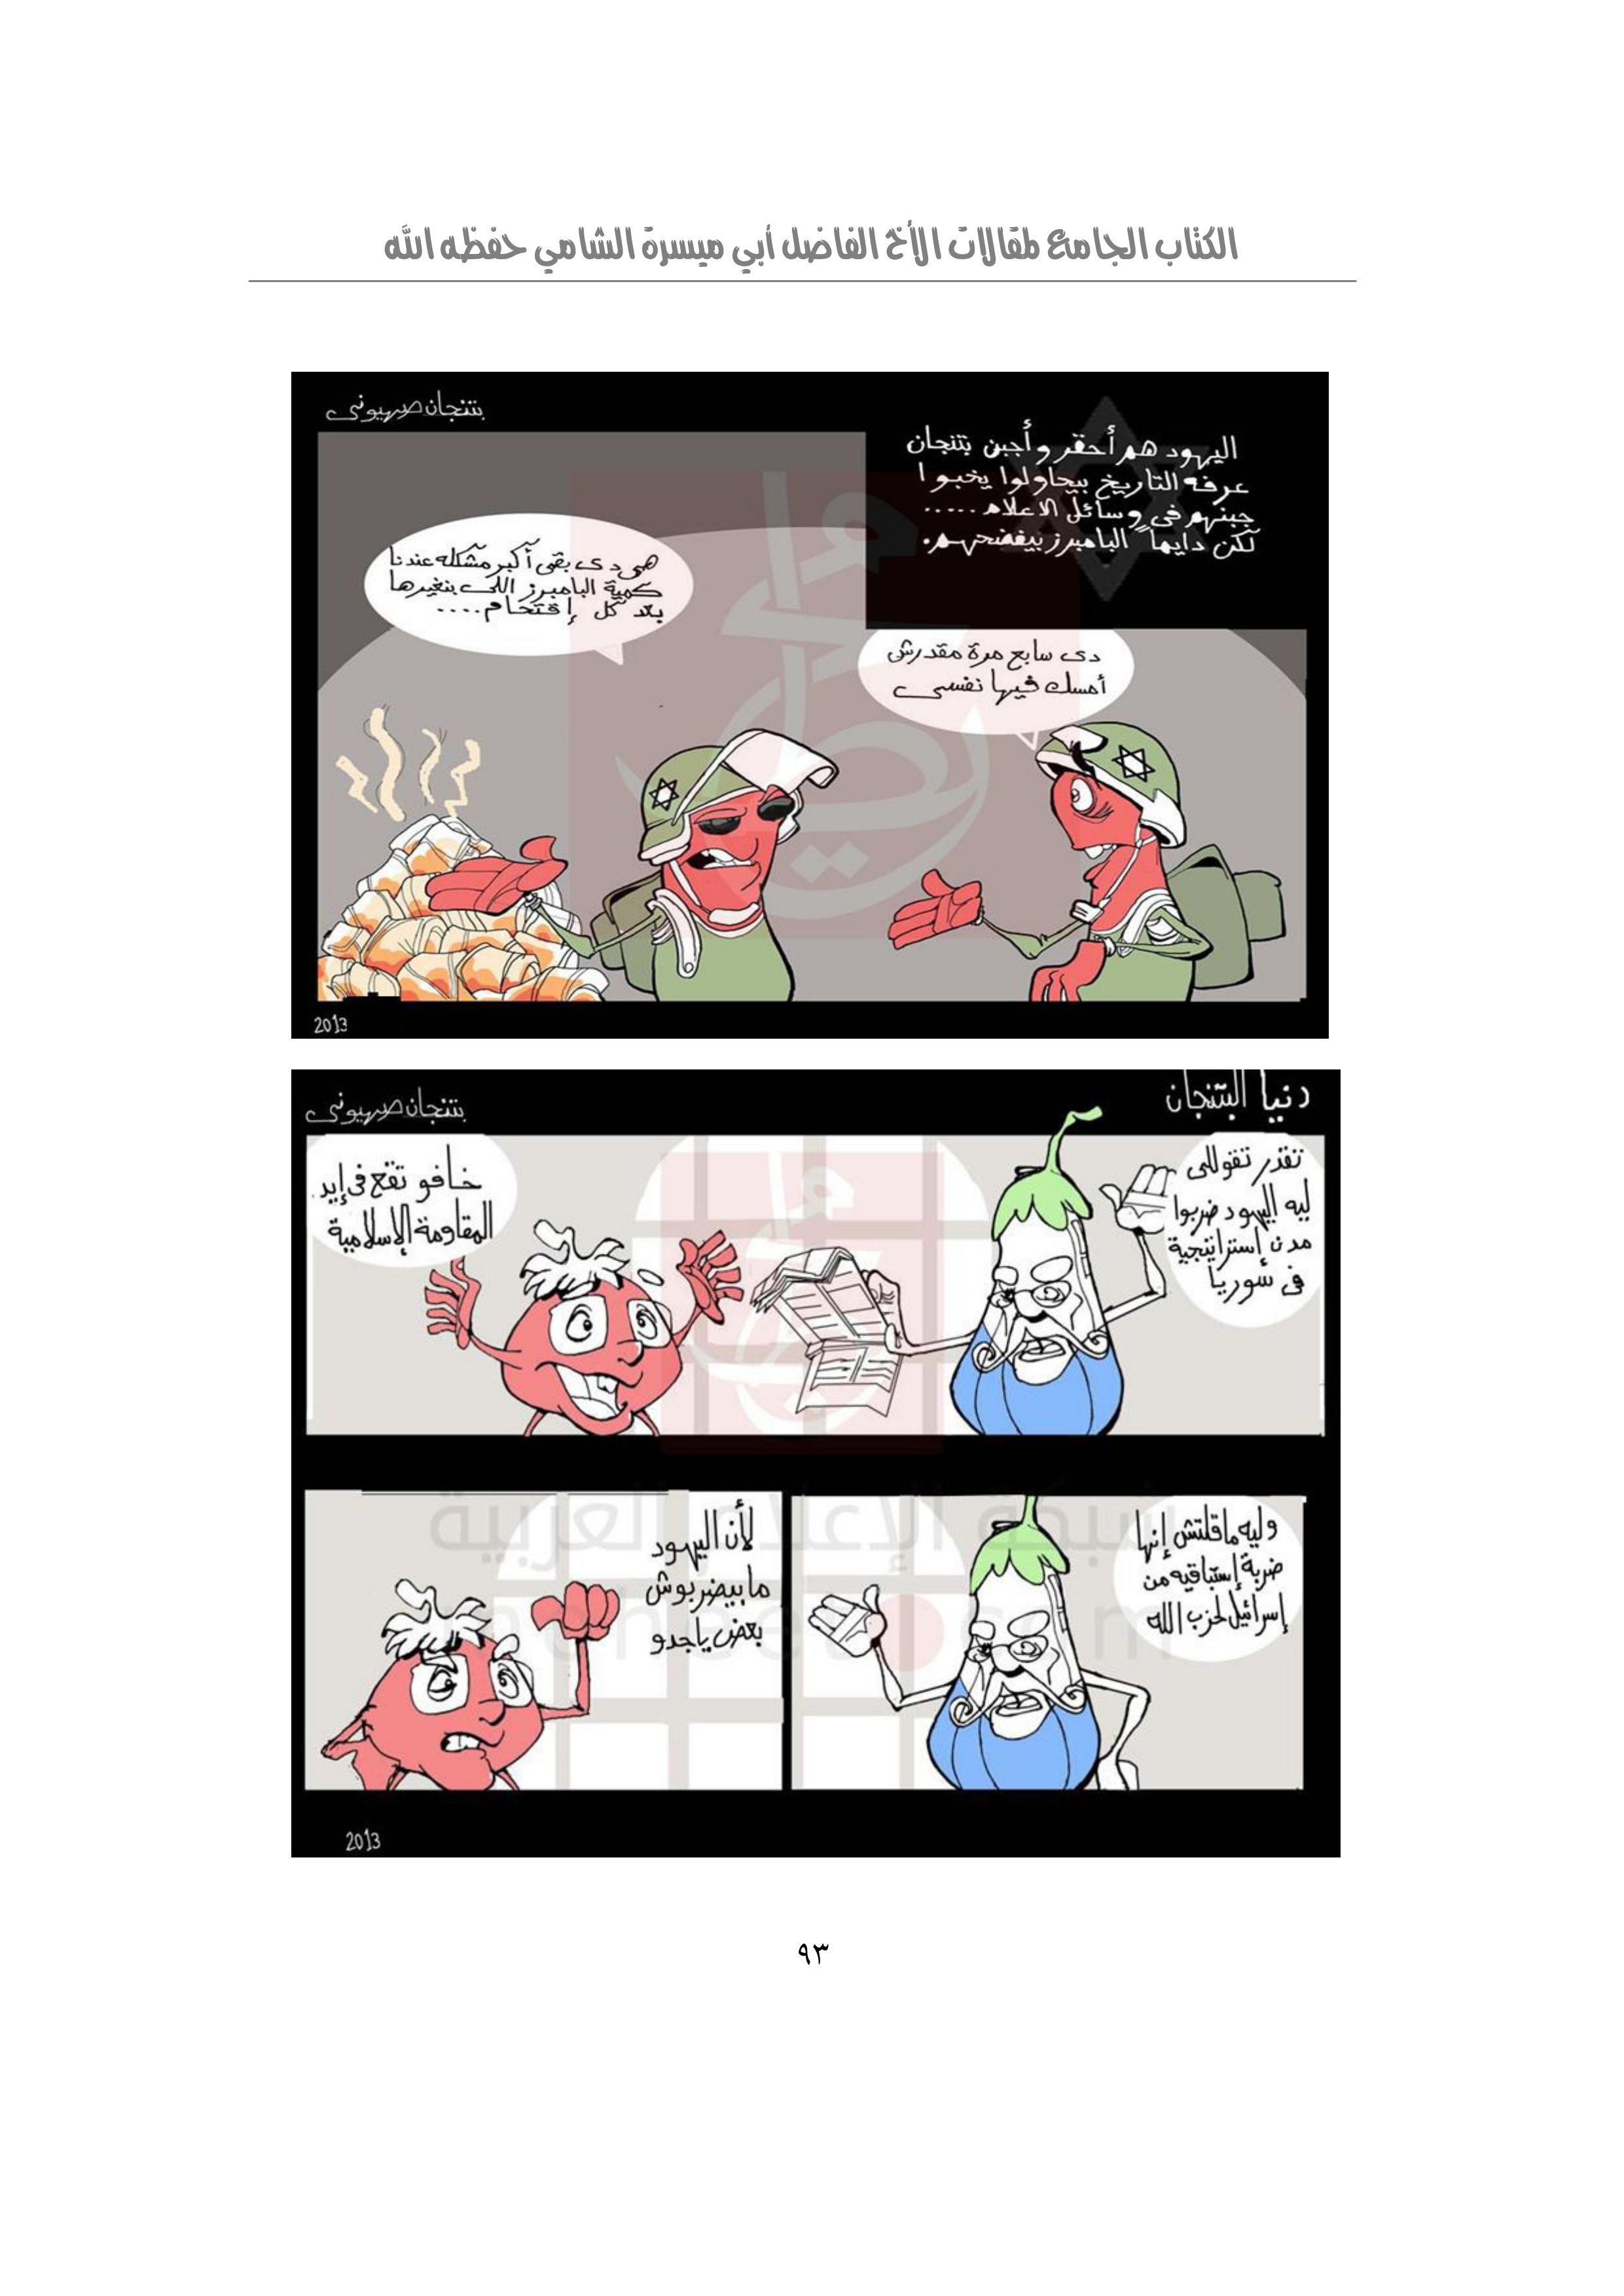 الكتاب الجامع لمقالات الأخ الفاضل أبي ميسرة الشامي حفظه الله
بتنجان صهيونى
اليهود هم أحقر و أجبن بتنجان
عرفه التاريخ بيحاولوا يخبوا
جبنهم فى وسائل الاعلام .....
لكن دايماً البامبرز بيفضحهم.
هى دى بقى أكبر مشكله عندنا
كمية البامبرز اللى بنغيرها
بعد كل إقتحام ....
دى سابع مرة مقدرش
أمسك فيها نفسى
2013
دنيا البتنجان
بتنجان صهيونى
تقدر تقوللى
ليه اليهود ضربوا
مدن إستراتيجية
فى سوريا
خافو تقع فى إيد
المقاومة الإسلامية
وليه ماقلتش إنها
ضربة إستباقيه من
إسرائيل لحزب الله
لأن اليهود
مابيضربوش
بعض ياجدو
شبكة الإعلام العربية
moheet.com
2013
٩٣